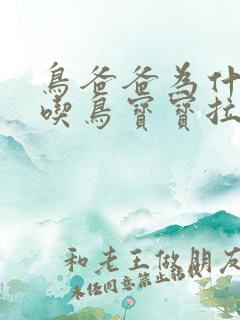 鳥爸爸為什
喫鳥寶寶拉
和老王做朋友
未任同意禁止轉載